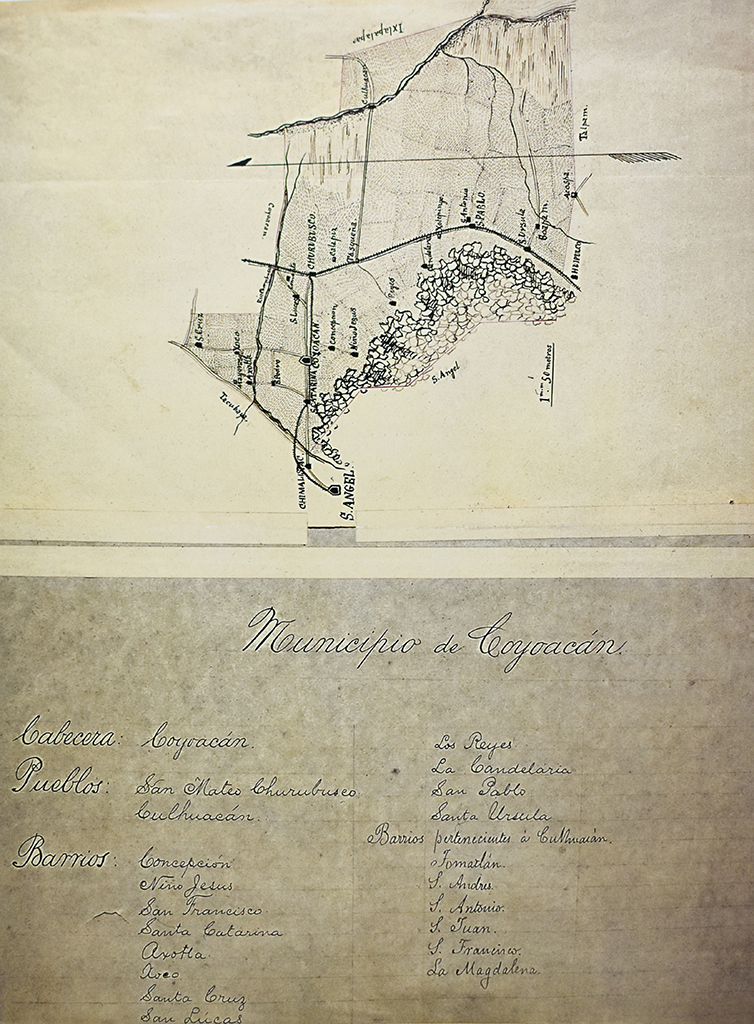 Ixtapalapa.
Culhuacan
Tlalpam.
Coyoacan
CHURUBUSCO.
S. Antonio
S. PABLO.
S. Ursula
HUIPULCO
S. Lucas
Reyes
Concepcion
Niño Jesus
COYOACAN
S. CATARINA
S. Cruz
Xoco
S. Pedro
S. Angel
1mm. 50 metros
S. ANGEL.
Municipio de Coyoacán.
Cabecera: Coyoacán.
Pueblos: San Mateo Churubusco
Culhuacán.
Barrios: Concepción
Niño Jesus
San Francisco
Santa Catarina
Axotla
Xoco
Santa Cruz
San Lúcas
Los Reyes
La Candelaria
San Pablo
Santa Ursula
Barrios pertenecientes á Culhuacán.
Tomatlán.
S. Andres.
S. Antonio.
S. Juan.
S. Francisco.
La Magdalena.